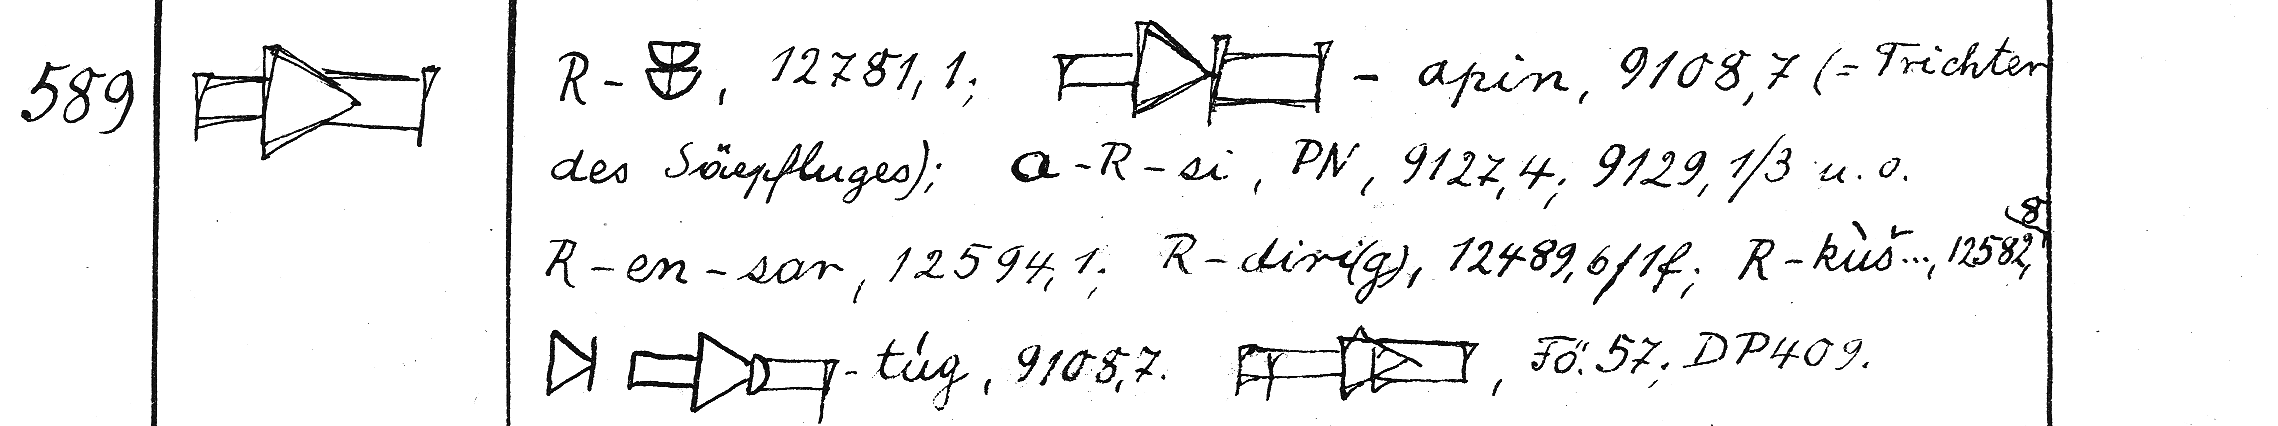 589 R - , 12781, 1; - apin, 9108, 7 (= Trichter
des Säepfluges); a - R - si, PN, 9127, 4; 9129, 1/3 u. o.
R - en - sar, 12594, 1; R - diri(g), 12489, 6/1f; R - kùš ..., 12582, 8
- túg, 9108, 7. , Fö. 57; DP 409.